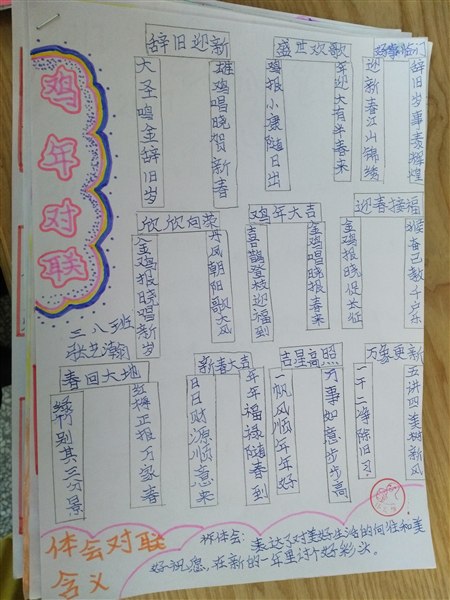 鸡年对联
三、八班
辞旧迎新
大圣鸣金辞旧岁
雄鸡唱晓贺新春
盛世欢歌
鸡报小康随日出
年迎大有半春来
迎新春江山锦绣
辞旧岁事泰辉煌
欣欣向荣
金鸡报晓唱新岁
丹凤朝阳歌大风
鸡年大吉
喜鹊登枝迎福到
金鸡唱晓报春来
迎春接福
金鸡报晓促长征
春回大地
绿竹别其三分景
红梅正报万家春
新春大吉
日日财源顺意来
年年福禄随春到
吉星高照
一帆风顺年年好
万事如意步步高
万象更新
一干二净除旧习
五讲四美树新风
体会对联
含义
体会:表达了对美好生活的向往和美
好祝愿,在新的一年里讨个好彩头。